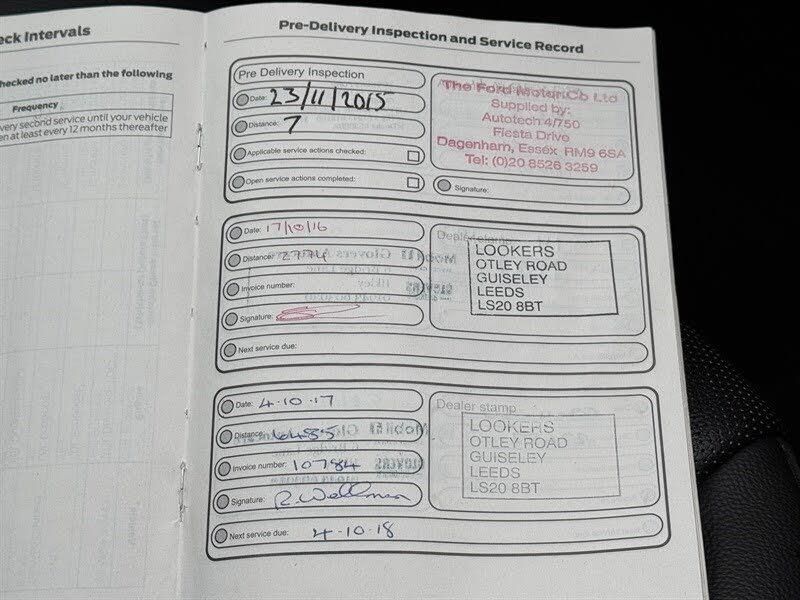 eck Intervals
hecked no later than the following
Frequency
very second service until your vehicle
en at least every 12 months thereafter
Pre-Delivery Inspection and Service Record
Pre Delivery Inspection
Date: 23/11/2015
Distance: 7
Applicable service actions checked:
Open service actions completed:
The Ford Motor Co Ltd
Supplied by:
Autotech 4/750
Fiesta Drive
Dagenham, Essex RM9 6SA
Tel: (0)20 8526 3259
Signature:
Date: 17/10/16
Distance: 2774
Invoice number:
Signature:
Next service due:
Dealer stamp
LOOKERS
OTLEY ROAD
GUISELEY
LEEDS
LS20 8BT
Date: 4.10.17
Distance: 6485
Invoice number: 10784
Signature: R. Wellman
Next service due: 4-10-18
Dealer stamp
LOOKERS
OTLEY ROAD
GUISELEY
LEEDS
LS20 8BT